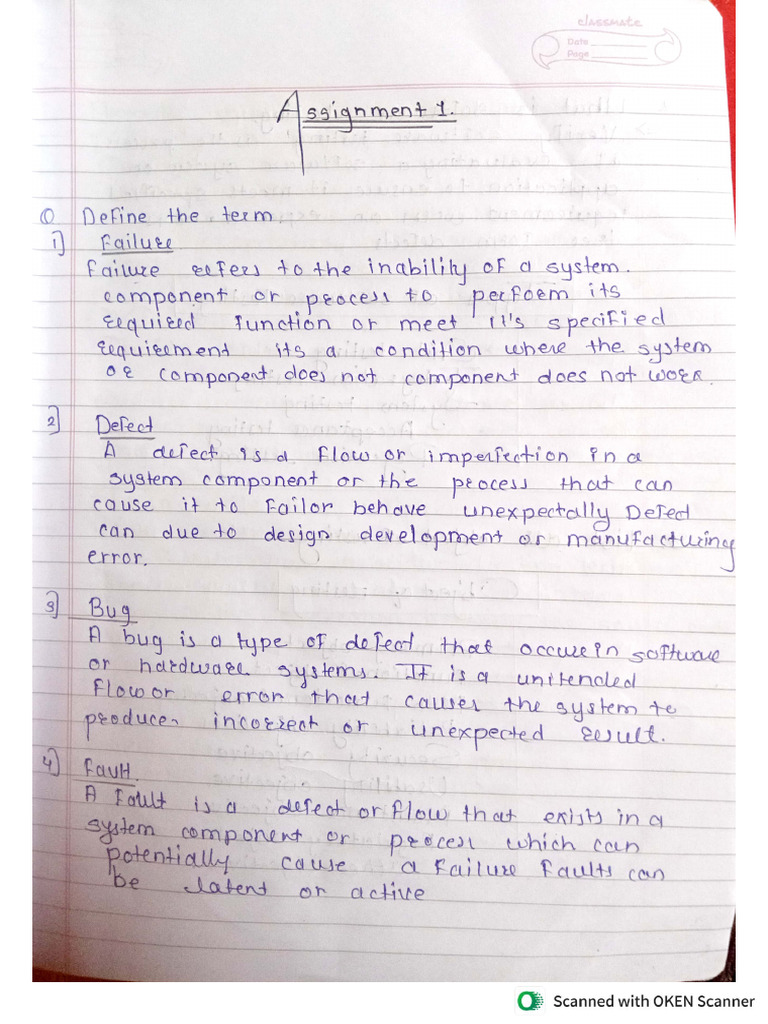 classmate
Date
Page
Assignment 1.
Q. Define the term.
1) Failure
Failure refers to the inability of a system.
component or process to perform its
required function or meet it's specified
requirement its a condition where the system
or component does not component does not work.
2) Defect
A defect is a flow or imperfection in a
system component or the process that can
cause it to Failor behave unexpectally Defect
can due to design development or manufacturing
error.
3) Bug
A bug is a type of defect that occure in software
or hardware systems. It is a unitended
flow or error that causes the system to
produces incorrect or unexpected result.
4) Fault.
A Fault is a defect or flow that exists in a
system component or process which can
potentially cause a Failure Faults can
be latent or active
Scanned with OKEN Scanner